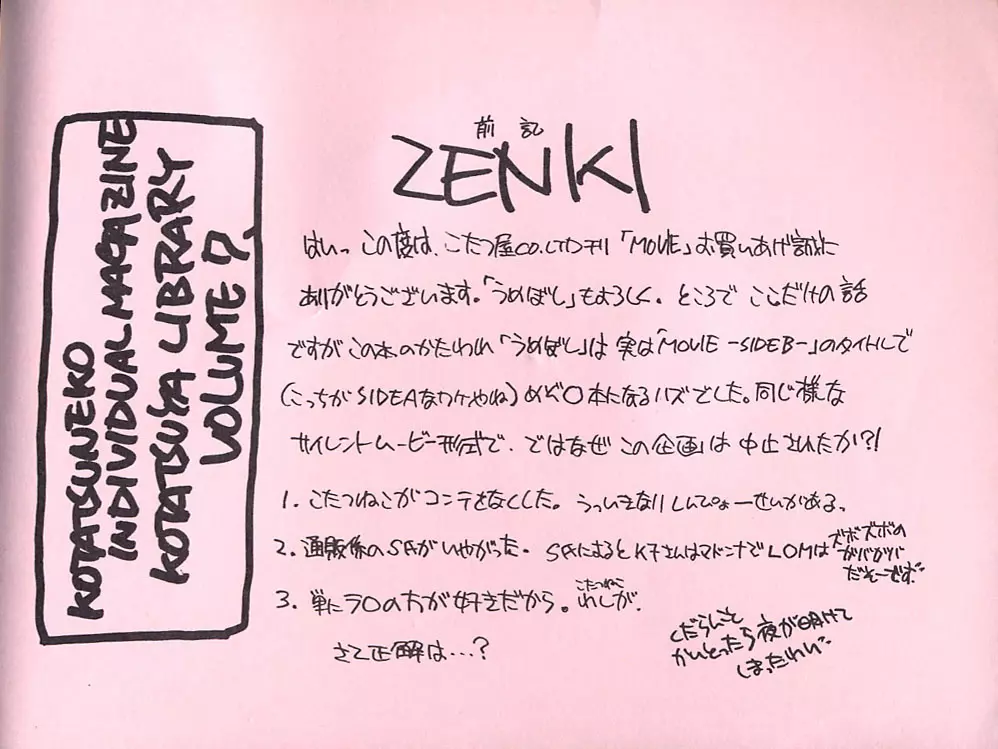 KOTATSUNEKO
INDIVIDUAL MAGAZINE
KOTATSUYA LIBRARY
VOLUME 7.
前記
ZENKI
はいっ この度は、こたつ屋CO.LTD刊「MOVIE」お買いあげ誠に
ありがとうございます。「うめぼし」もよろしく. ところで ここだけの話
ですが この本のかたわれ「うめぼし」は 実は「MOVIE -SIDEB-」のタイトルで
(こっちが SIDEAなワケやね) めぞ〇本になるハズでした。同じ様な
サイレントムービー形式で. ではなぜ この企画は 中止されたか?!
1. こたつねこがコンテをなくした。 うっいきなりしんぴょーせいがある、
2. 通販係のS氏がいやがった. S氏によるとK子さんはマドンナでLOMは
ズボズボの
ガバガバ
だそーです.
3. 単にラ〇の方が好きだから。わしが.
こたつねこ
さて正解は…?
くだらんこと
かいとったら夜が明けて
しまったわい